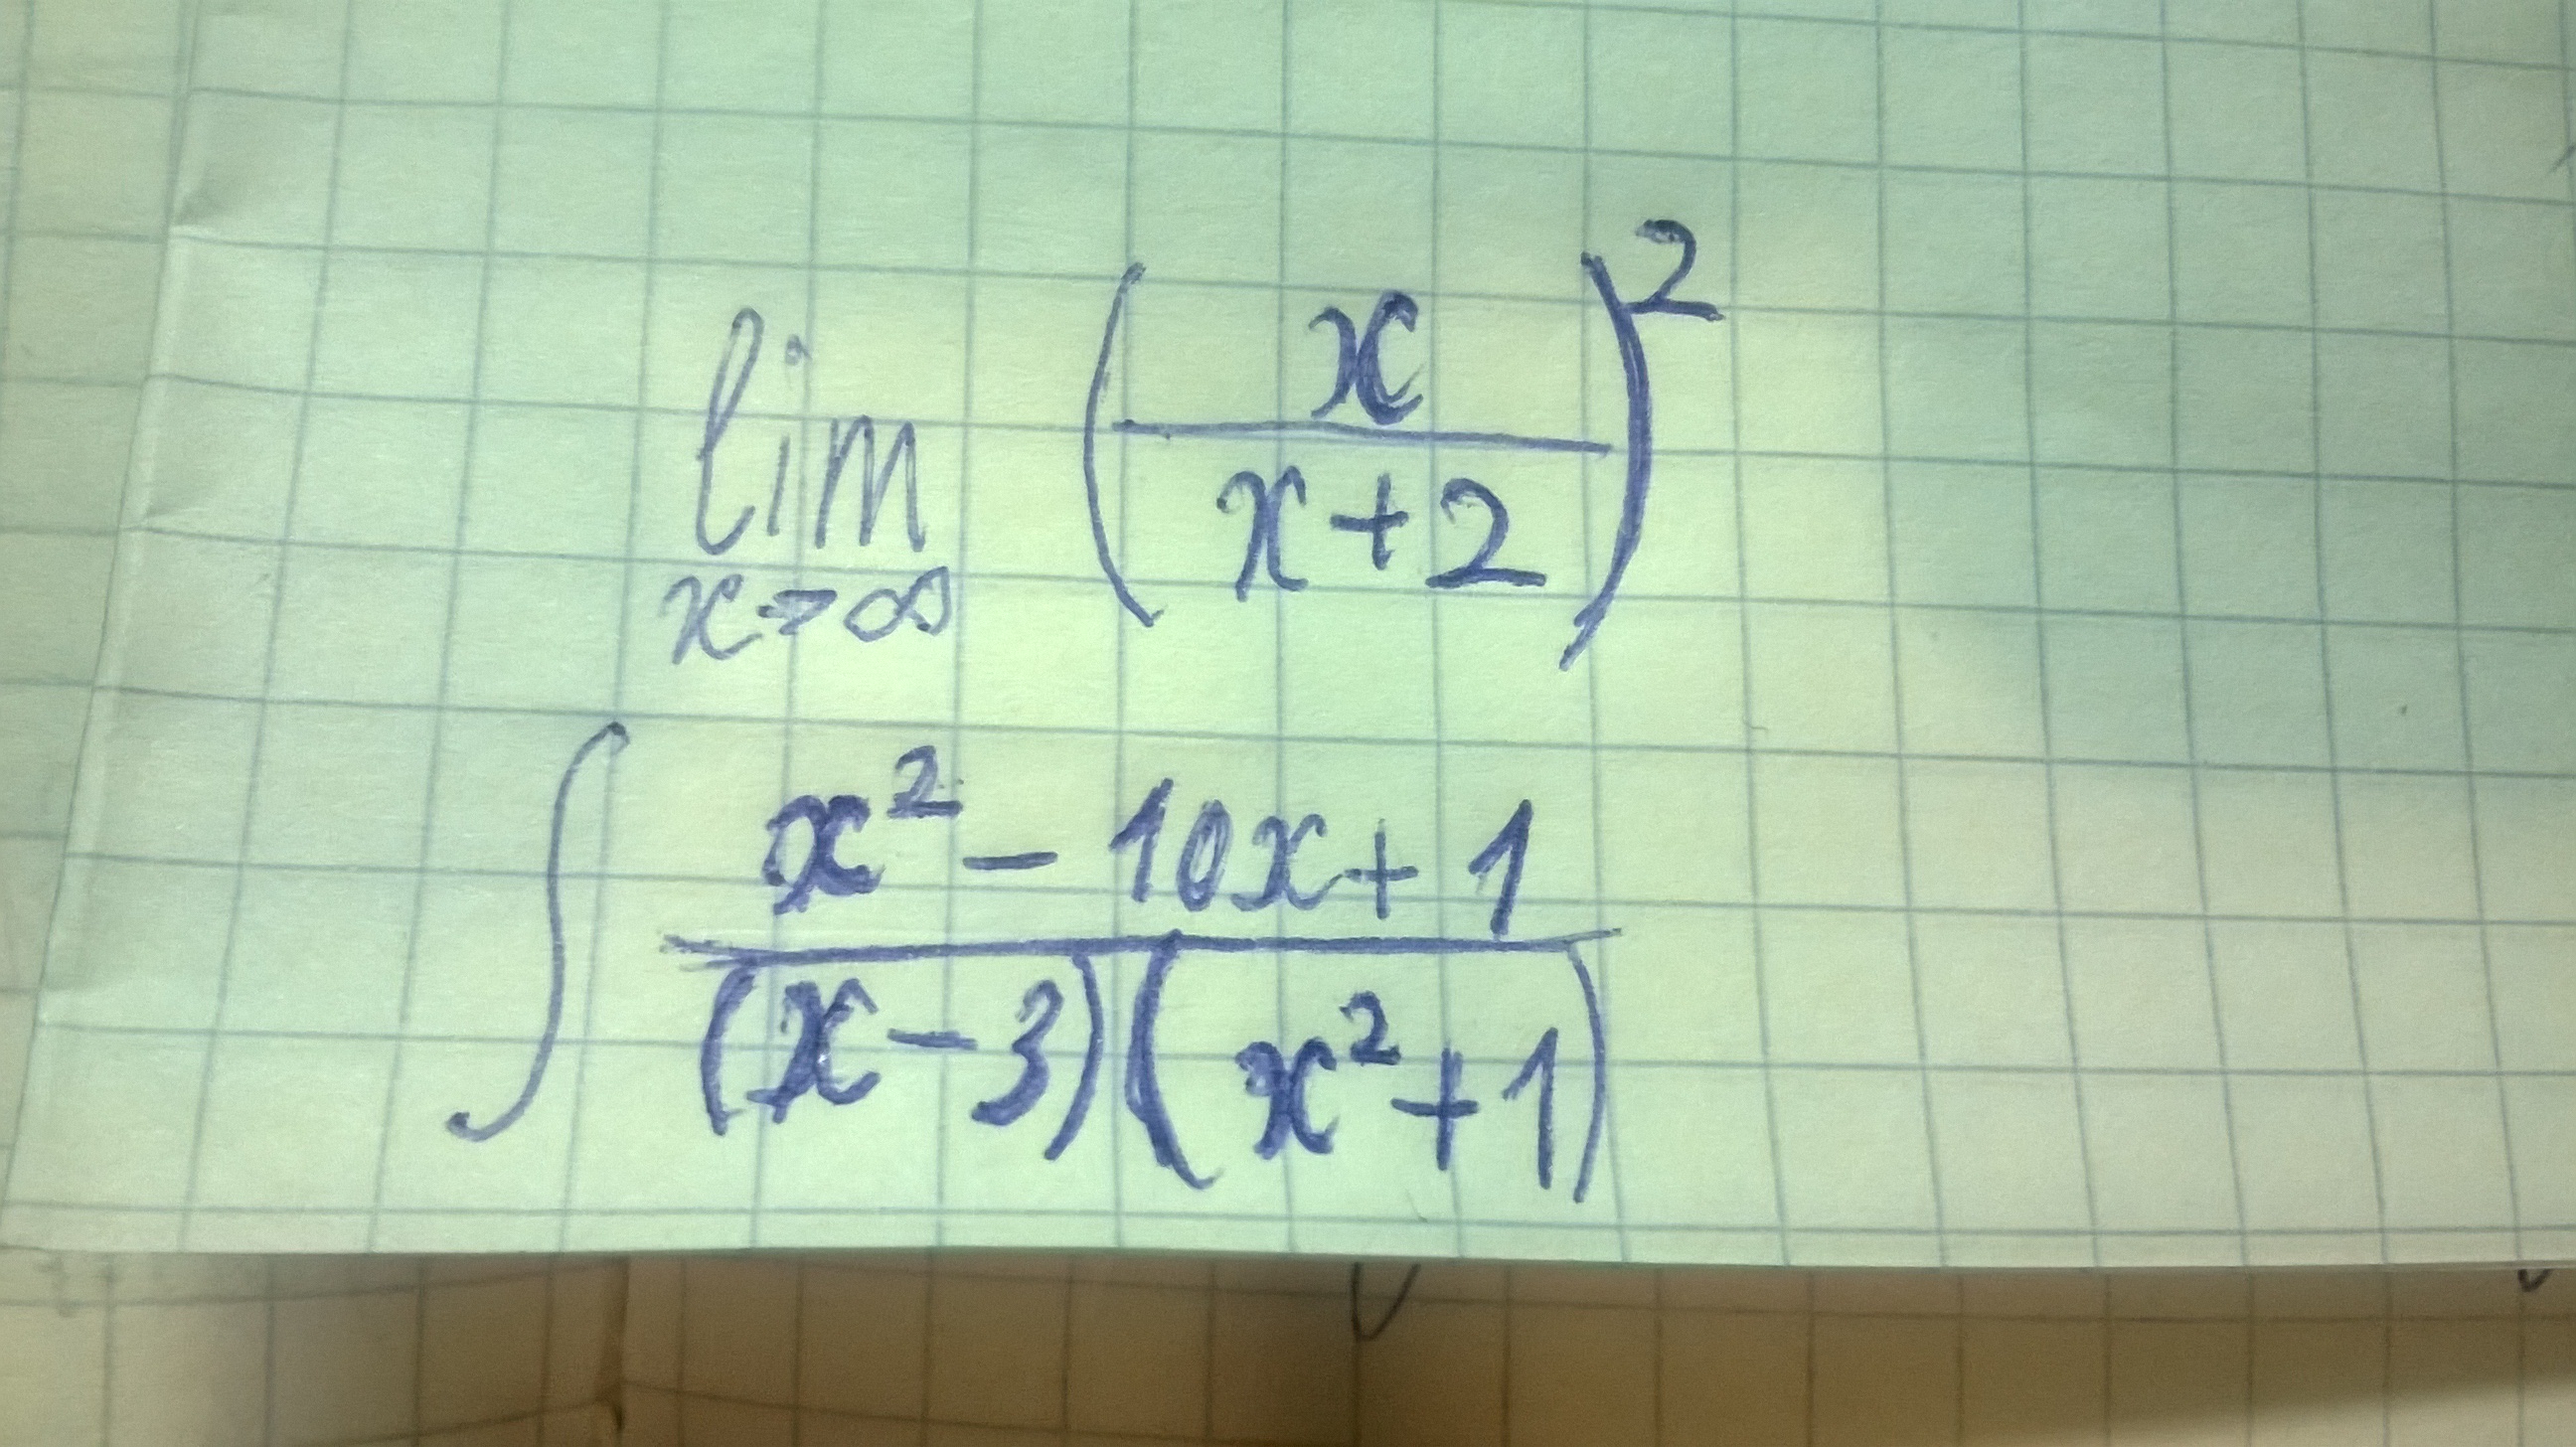 lim x→∞ (x/(x+2))²
∫ (x² − 10x + 1)/((x−3)(x²+1))